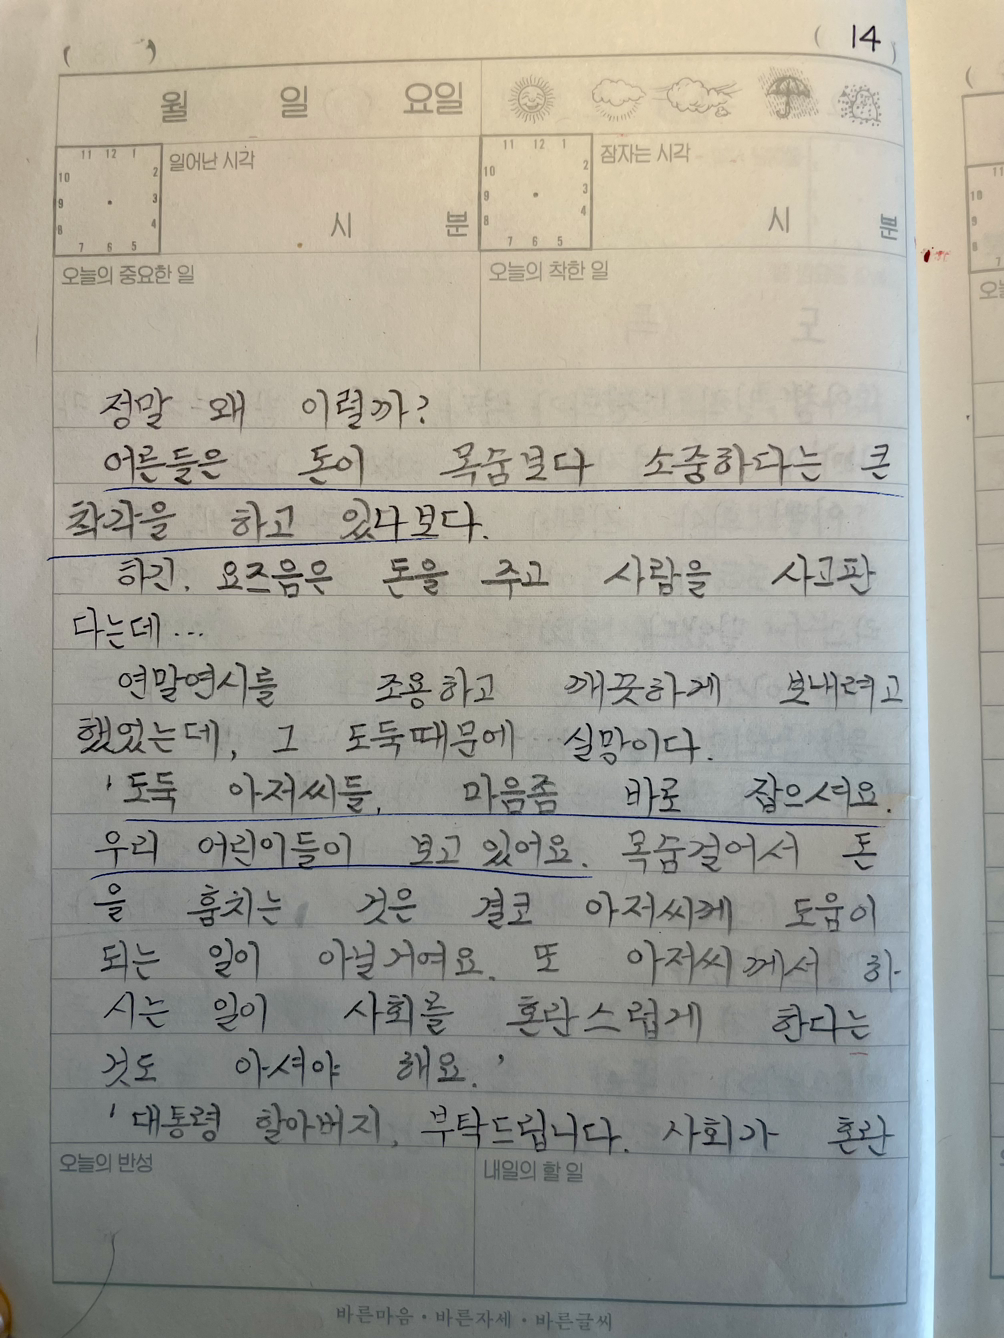 ( ) ( 14 )
월 일 요일
11 12 1 일어난 시각 11 12 1 잠자는 시각
10 2 10 2
9 3 시 분 9 3 시 분
8 4 8 4
7 6 5 7 6 5
오늘의 중요한 일 오늘의 착한 일
정말 왜 이럴까?
어른들은 돈이 목숨보다 소중하다는 큰
착각을 하고 있나보다.
하긴, 요즈음은 돈을 주고 사람을 사고판
다는데...
연말연시를 조용하고 깨끗하게 보내려고
했었는데, 그 도둑때문에 실망이다.
'도둑 아저씨들, 마음좀 바로 잡으셔요.
우리 어린이들이 보고 있어요. 목숨걸어서 돈
을 훔치는 것은 결코 아저씨께 도움이
되는 일이 아닐거여요. 또 아저씨께서 하
시는 일이 사회를 혼란스럽게 한다는
것도 아셔야 해요.'
'대통령 할아버지, 부탁드립니다. 사회가 혼란
오늘의 반성 내일의 할 일
바른마음·바른자세·바른글씨